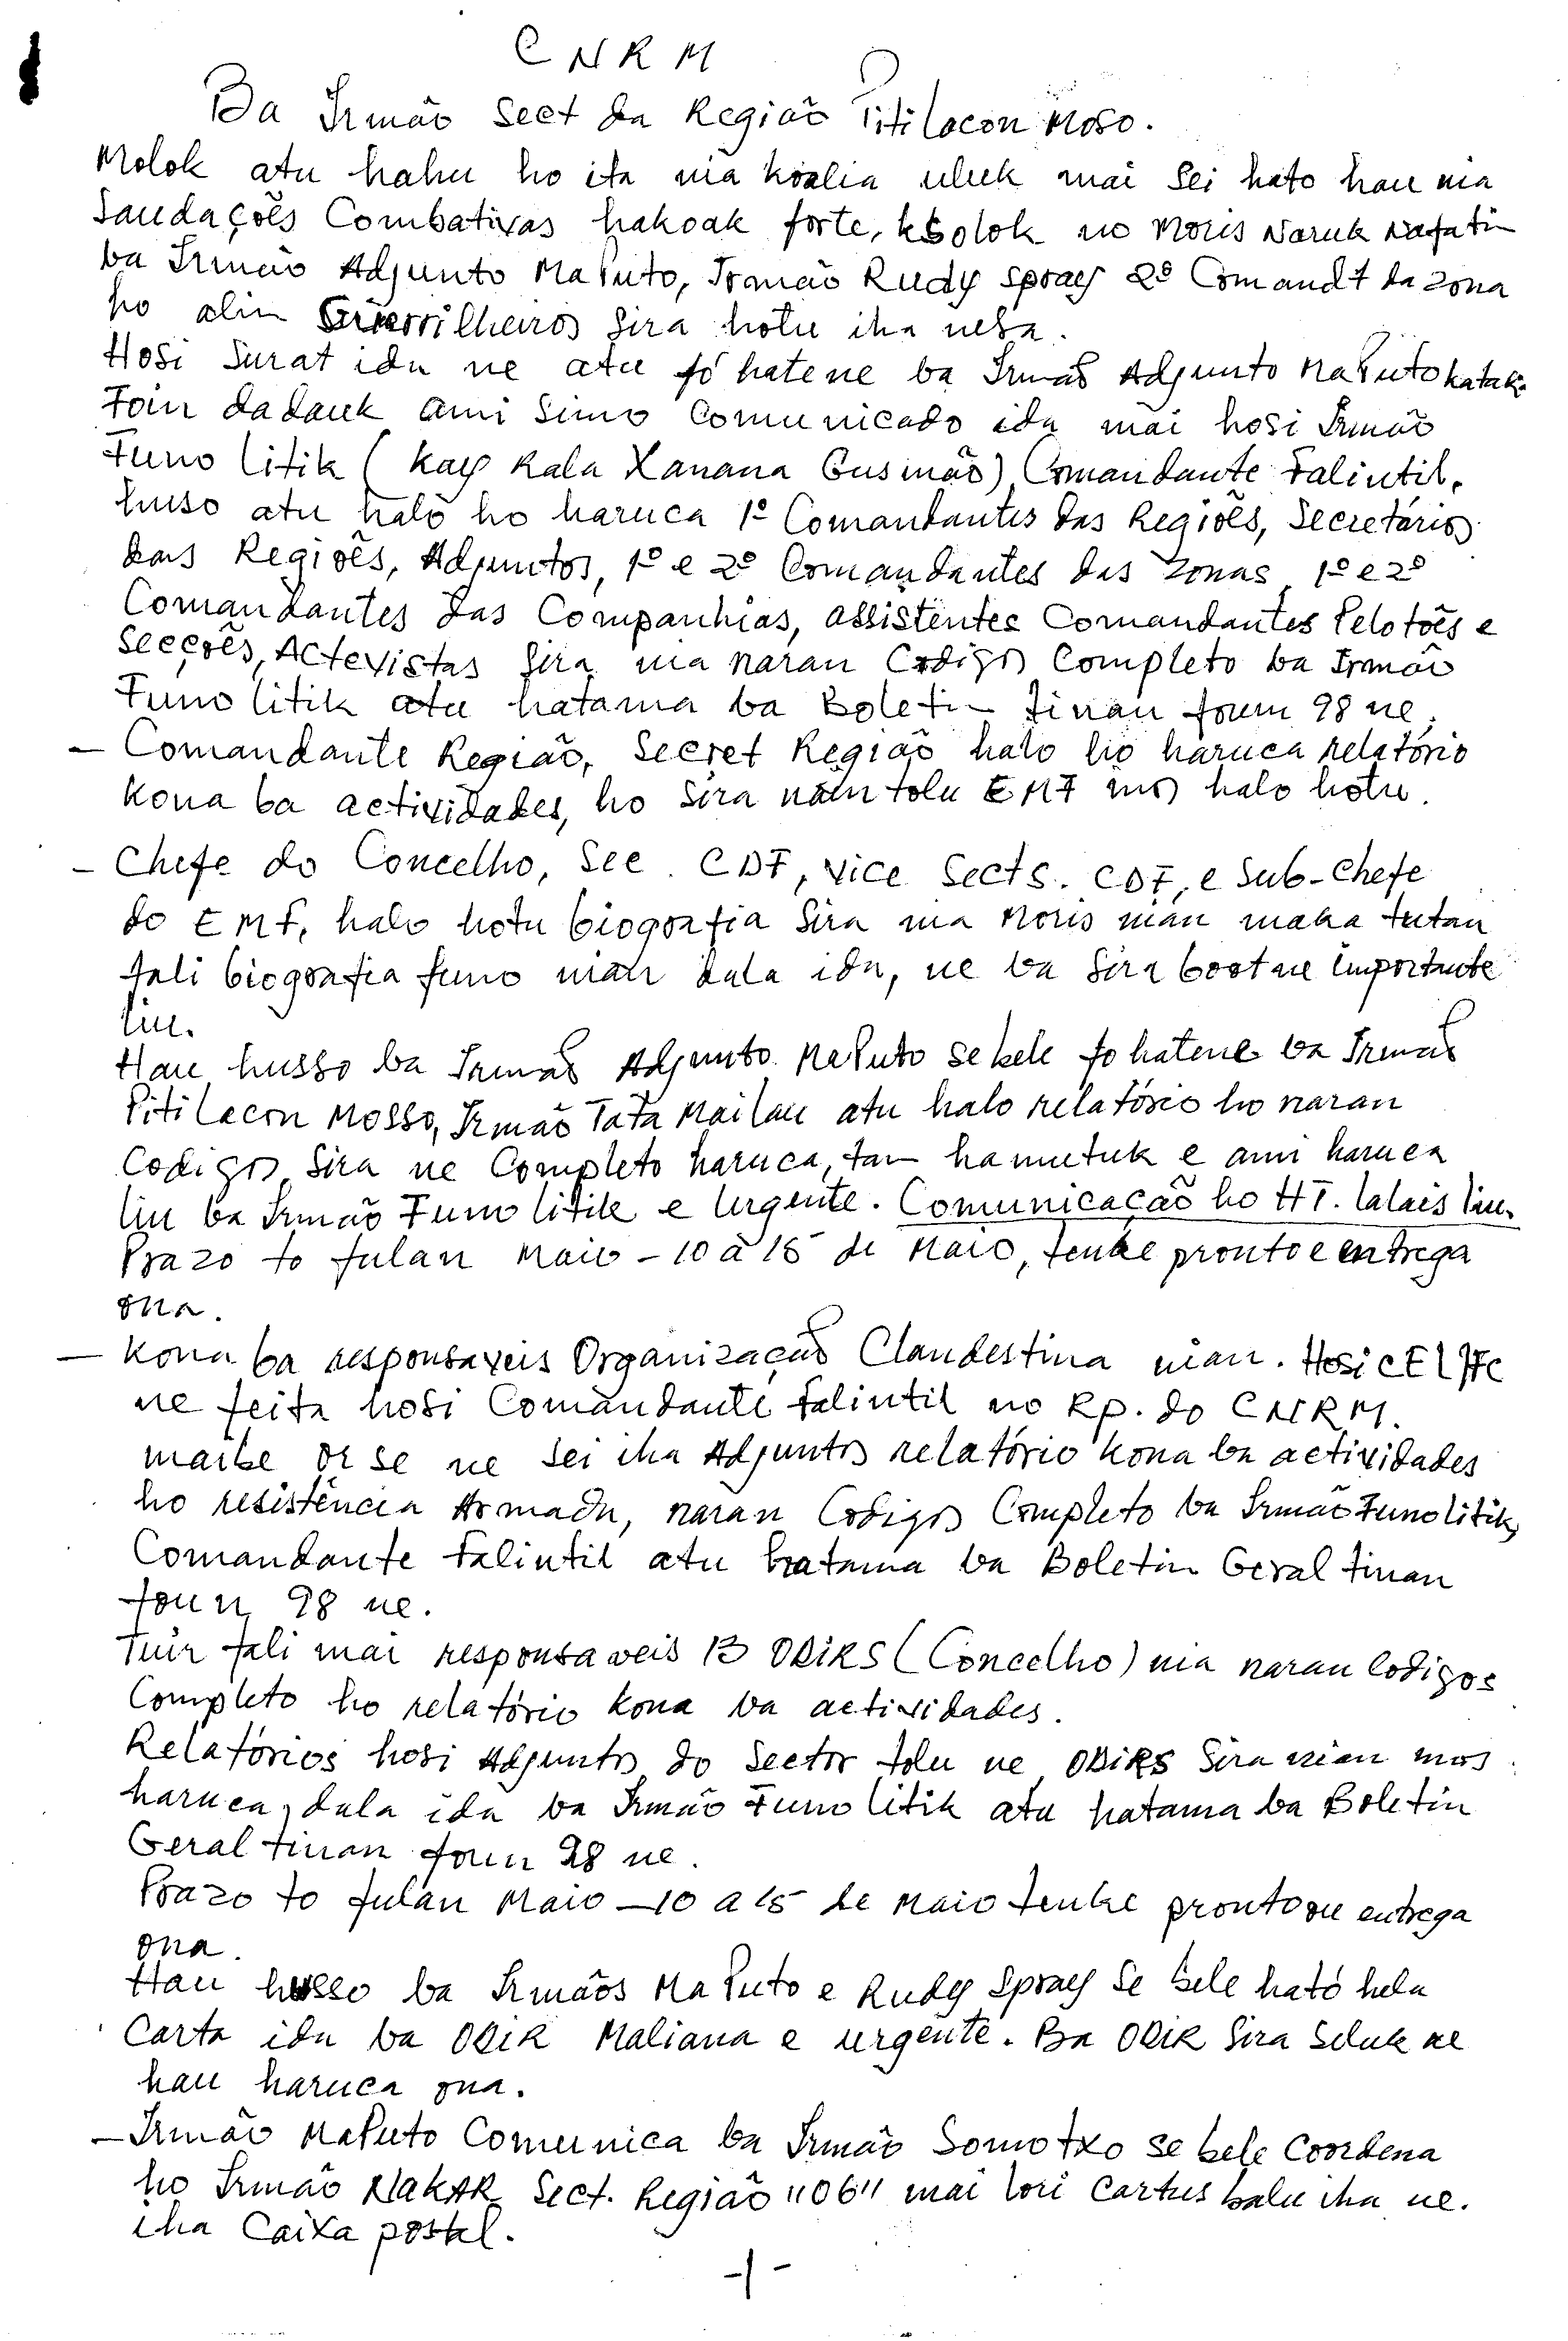 CNRM
Ba Irmão Sect da Região Pitilacon Moso.
Molok atu hahu ho ita nia koalia uluk mai sei hato hau nia
Saudações Combativas hakoak forte, ksolok no Moris Naruk Nafatin
ba Irmão Adjunto MaPuto, Irmão Rudy Spray 2º Comandt da Zona
ho alin Guerrilheiros sira hotu iha neba.
Hosi Surat ida ne atu fó hatene ba Irmão Adjunto MaPuto katak
Foin dadauk ami simo Comunicado ida mai hosi Irmão
Funo Litik (Kay Rala Xanana Gusmão) Comandante Falintil,
huso atu halo ho haruca 1º Comandantes das Regiões, Secretários
das Regiões, Adjuntos, 1º e 2º Comandantes das Zonas, 1º e 2º
Comandantes das Companhias, assistentes Comandantes Pelotões e
Secções, Actevistas sira nia naran Codigos Completo ba Irmão
Funo Litik atu hatama ba Boletin tinan foun 98 ne.
– Comandante Região, Secret Região halo ho haruca relatório
kona ba actividades, ho sira nain tolu EMF mos halo hotu.
– Chefe do Concelho, Sec. CDF, Vice Sects. CDF, e Sub-Chefe
do EMF, halo hotu biografia sira nia Moris nian maka tutan
fali biografia funo nian dala ida, ne ba sira boot ne importante
liu.
Hau husso ba Irmão Adjunto MaPuto se bele fo hatene ba Irmão
Pitilacon Mosso, Irmão Tata Mailau atu halo relatório ho naran
Codigos sira ne Completo haruca, tan hamutuk e ami haruca
liu ba Irmão Funo Litik e Urgente. Comunicação ho HT. lalais liu.
Prazo to fulan Maio – 10 à 15 de Maio, tenke pronto e entrega
ona.
– Kona ba responsaveis Organização Clandestina nian. Hosi CEL/FC
ne feita hosi Comandante Falintil no Rp. do CNRM.
maibe oi se ne sei iha Adjuntos relatório kona ba actividades
ho resistência Armada, naran Codigos Completo ba Irmão Funo Litik,
Comandante Falintil atu hatama ba Boletin Geral tinan
foun 98 ne.
Tuir fali mai responsaveis 13 ODIRS (Concelho) nia naran Codigos
Completo ho relatório kona ba actividades.
Relatórios hosi Adjuntos do Sector tolu ne ODIRS sira nian mos
haruca dala ida ba Irmão Funo Litik atu hatama ba Boletin
Geral tinan foun 98 ne.
Prazo to fulan Maio – 10 a 15 de Maio tenke pronto ou entrega
ona.
Hau husso ba Irmãos MaPuto e Rudy Spray se bele ható hela
Carta ida ba ODIR Maliana e urgente. Ba ODIR sira seluk ne
hau haruca ona.
– Irmão MaPuto Comunica ba Irmão Somotxo se bele Coordena
ho Irmão NAKAR Sect. Região "06" mai lori Cartus balu iha ne.
iha Caixa postal.
–1–